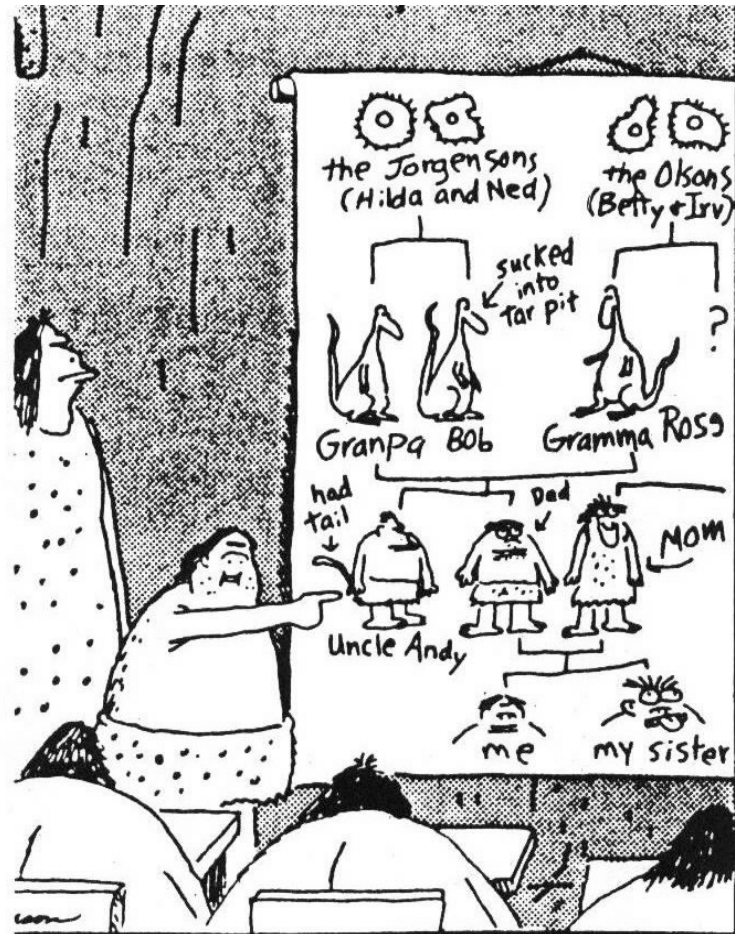 the Jorgensons
(Hilda and Ned)
the Olsons
(Betty + Irv)
sucked
into
tar pit
?
Granpa
Bob
Gramma Rose
had
tail
Dad
Mom
Uncle Andy
me
my sister